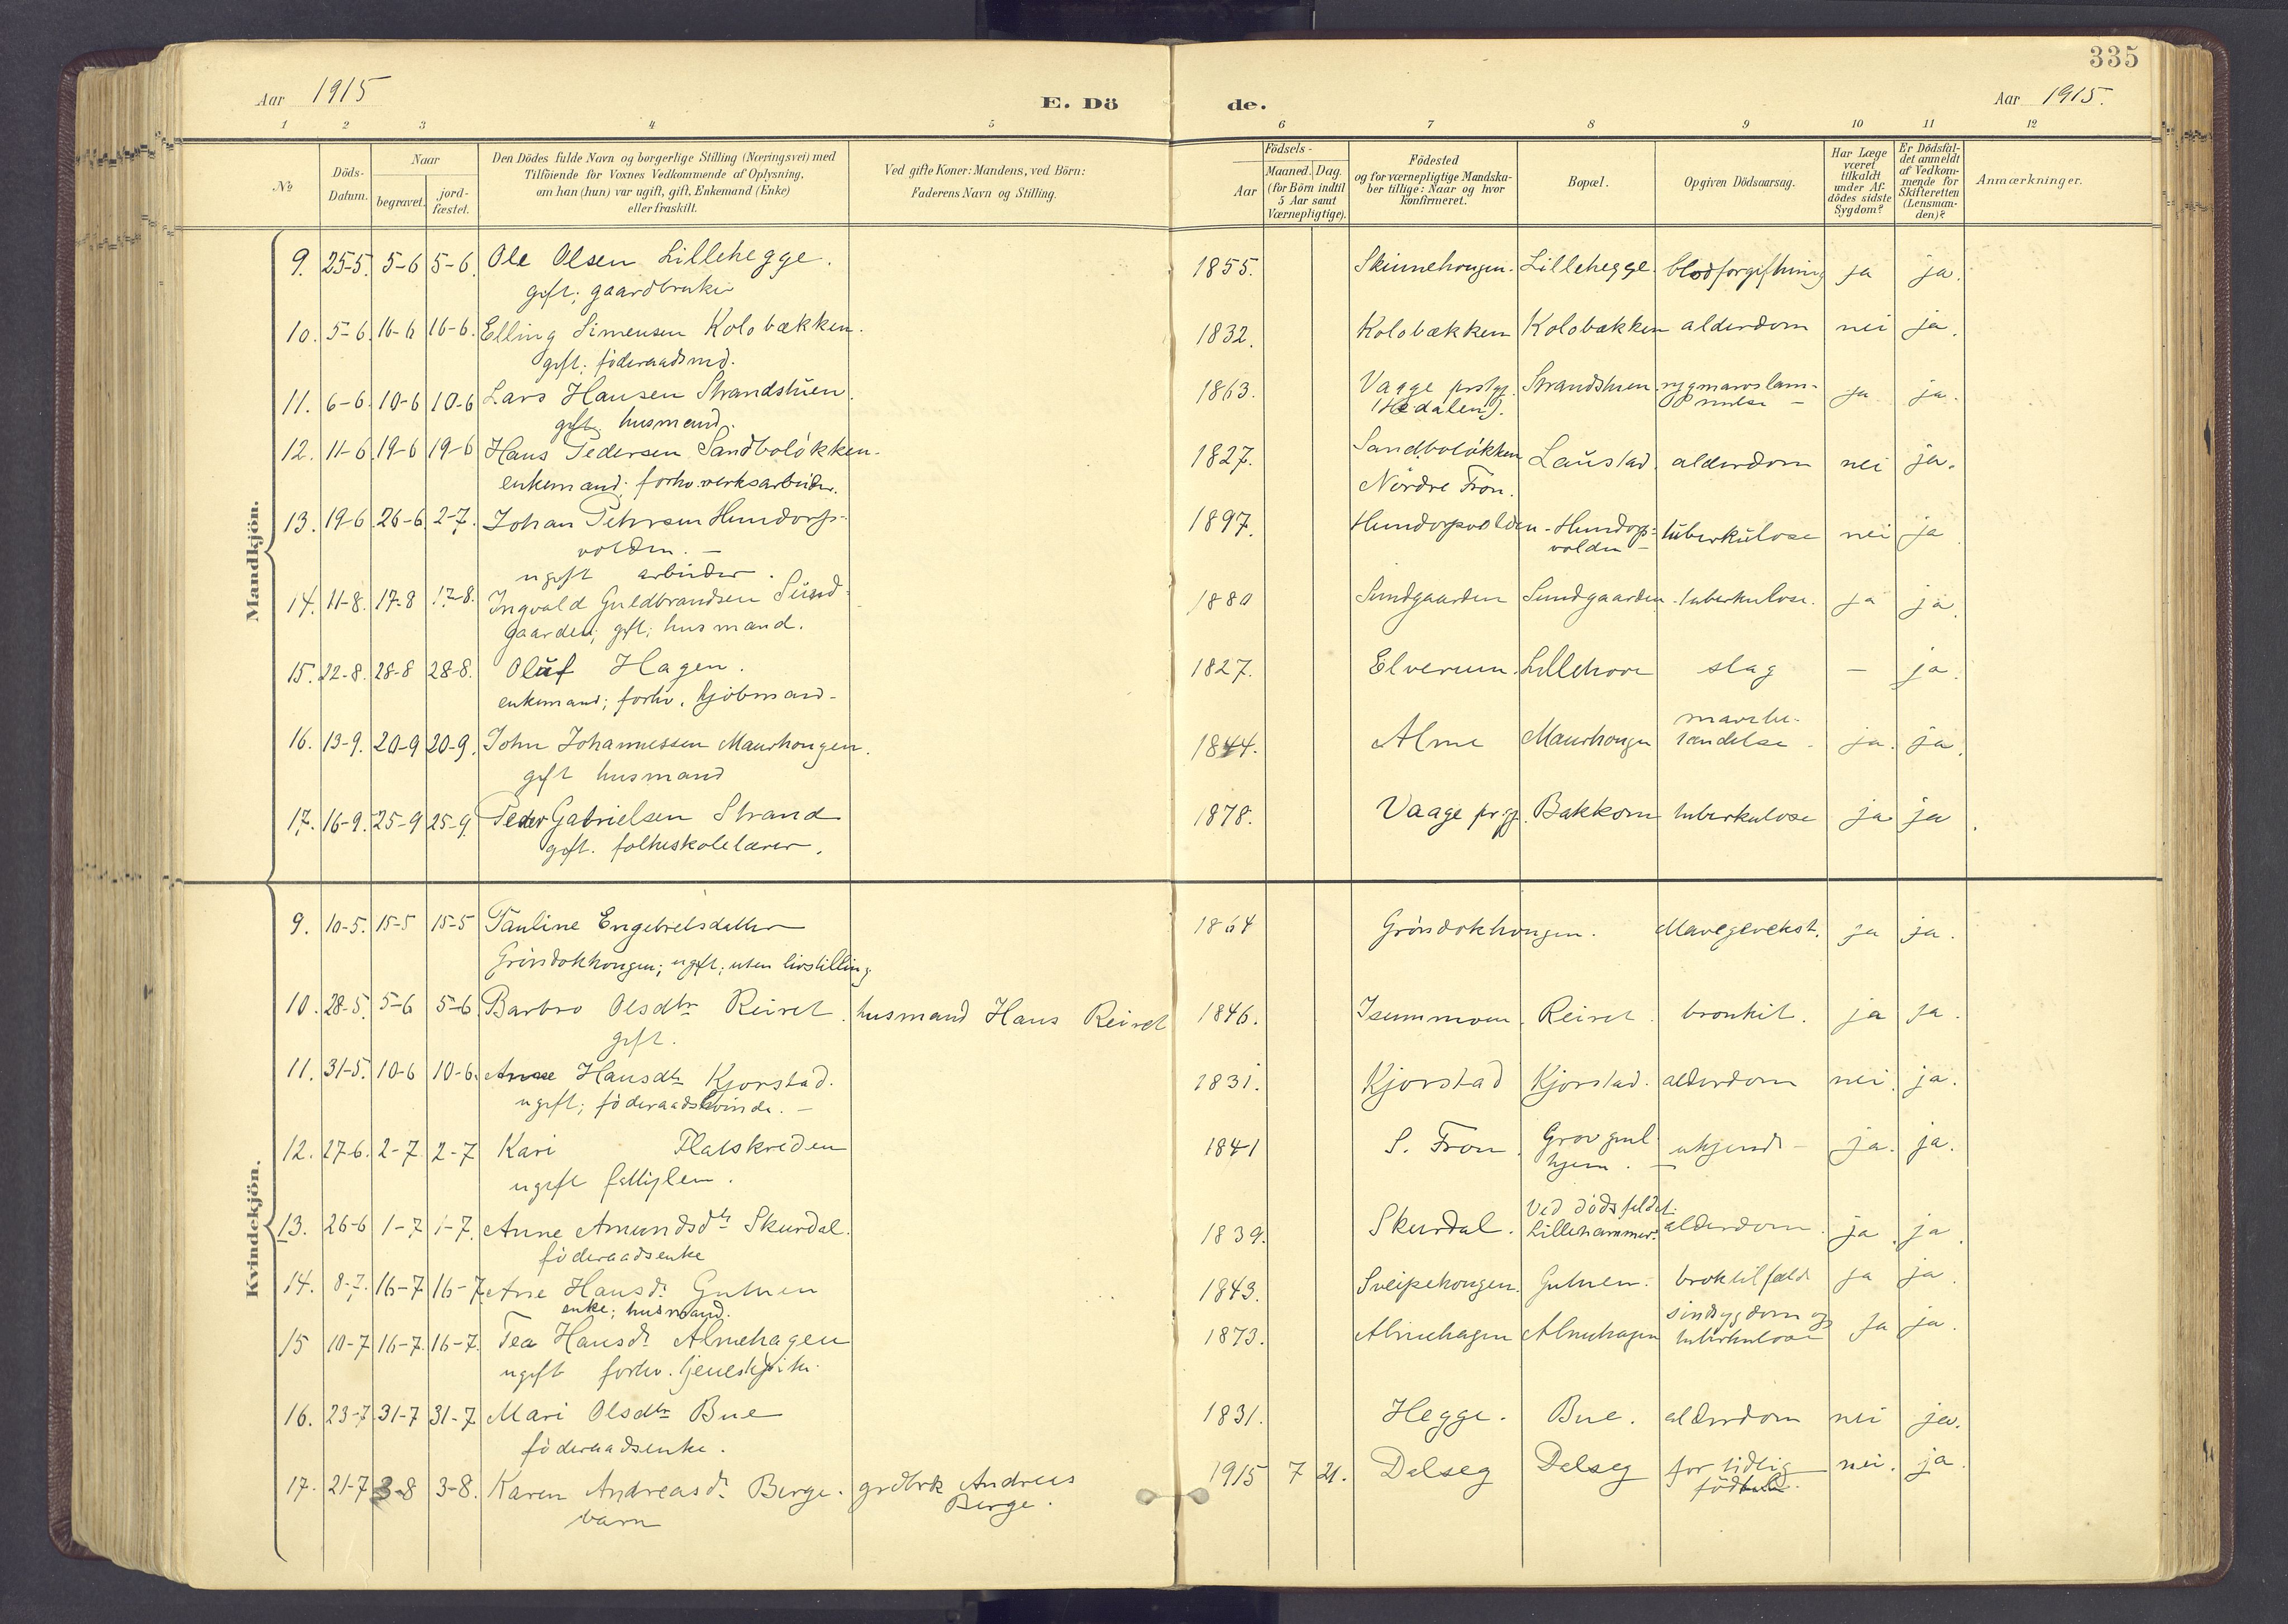 335
Aar 1915
E. Dö
de.
Aar 1915.
1 2 3 4 5 6 7 8 9 10 11 12
No
Döds-Datum.
Naar
begravet.
jord-fæstet.
Den Dödes fulde Navn og borgerlige Stilling (Næringsvei) med
Tilföiende for Voxnes Vedkommende af Oplysning,
om han (hun) var ugift, gift, Enkemand (Enke)
eller fraskilt.
Ved gifte Koner: Mandens, ved Börn:
Faderens Navn og Stilling.
Födsels-
Aar
Maaned. Dag.
(for Börn indtil
5 Aar samt
Værnepligtige).
Födested
og for værnepligtige Mandska-
ber tillige: Naar og hvor
konfirmeret.
Bopæl.
Opgiven Dödsaarsag.
Har Læge
været
tilkaldt
under Af-
dödes sidste
Sygdom?
Er Dödsfal-
det anmeldt
af Vedkom-
mende for
Skifteretten
(Lensman-
den)?
Anmærkninger.
Mandkjön.
9. 25-5. 5-6 5-6. Ole Olsen Lillehegge. 1855. Skinnehougen. Lillehegge. blodforgiftning ja ja.
gift; gaardbruker
10. 5-6. 16-6 16-6. Elling Simensen Kolobækken. 1832. Kolobækken Kolobækken alderdom nei ja.
gift; föderaadsmd.
11. 6-6. 10-6 10-6 Lars Hansen Strandstuen. 1863. Vaage prstgj. Strandstuen rygmarvslam- ja ja.
gift; husmand. (Hedalen). melse -
12. 11-6. 19-6 19-6 Hans Pedersen Sandbolökken. 1827. Sandbolökken Laustad. alderdom nei ja.
enkemand; forhv. verksarbeider. Nördre Fron.
13. 19-6. 26-6 2-7. Johan Petersen Hundorp- 1897. Hundorpvolden - Hundorp- tuberkulose nei ja
volden. - volden -
ugift arbeider.
14. 11-8. 17-8 17-8. Ingvald Guldbrandsen Sund- 1880 Sundgaarden Sundgaarden tuberkulose. ja ja.
gaarden; gift; husmand.
15. 22-8. 28-8 28-8. Oluf Hagen. 1827. Elverum. Lillehove slag - ja.
enkemand; forhv. kjöbmand-
16. 13-9. 20-9 20-9. John Johannessen Maurhougen. 1844. Alme Maurhougen mavebe-
tændelse - ja. ja.
gift husmand
17. 16-9. 25-9 25-9. Peder Gabrielsen Strand 1878. Vaage prgj. Bakkom tuberkulose ja ja.
gift. folkeskolelærer.
Kvindekjön.
9. 10-5. 15-5 15-5 Pauline Engebretsdatter 1864 Gröndokhougen. Mavegevekst. ja ja.
Gröndokhougen; ugift; uten livstilling
10. 28-5. 5-6 5-6 Barbro Olsdtr Reiret. husmand Hans Reiret 1846. Isummoen. Reiret. bronkit. ja ja.
gift.
11. 31-5. 10-6 10-6. Anne Hansdtr Kjorstad. 1831. Kjorstad Kjorstad. alderdom nei. ja.
ugift; föderaadskvinde. -
12. 27-6. 2-7 2-7 Kari Flatskreden 1841 S. Fron. Grov gml. ukjendt - ja. ja.
ugift fattiglem. hjem. -
13. 26-6 1-7 1-7. Anne Amundsdtr Skurdal. 1839. Skurdal. Ved dödsfaldet:
Lillehammer. alderdom. ja. ja.
föderaadsenke
14. 8-7. 16-7 16-7. Ane Hansdr. Gutuen 1843. Sveipehougen. Gutuen. broktilfæld ja ja.
enke; husmand.
15 10-7 16-7. 16-7. Tea Hansdr. Almehagen 1873. Almehagen Almehagen sindsygdom og
tuberkulose ja ja.
ugift forhv. tjenestpike.
16. 23-7. 31-7 31-7. Mari Olsdtr Bue 1831. Hegge. Bue. alderdom nei ja.
föderaadsenke.
17. 21-7 3-8 3-8. Karen Andreasdr. Berge. grdbrk Andreas 1915 7 21. Dalseg Dalseg for tidlig nei. ja.
barn Berge.